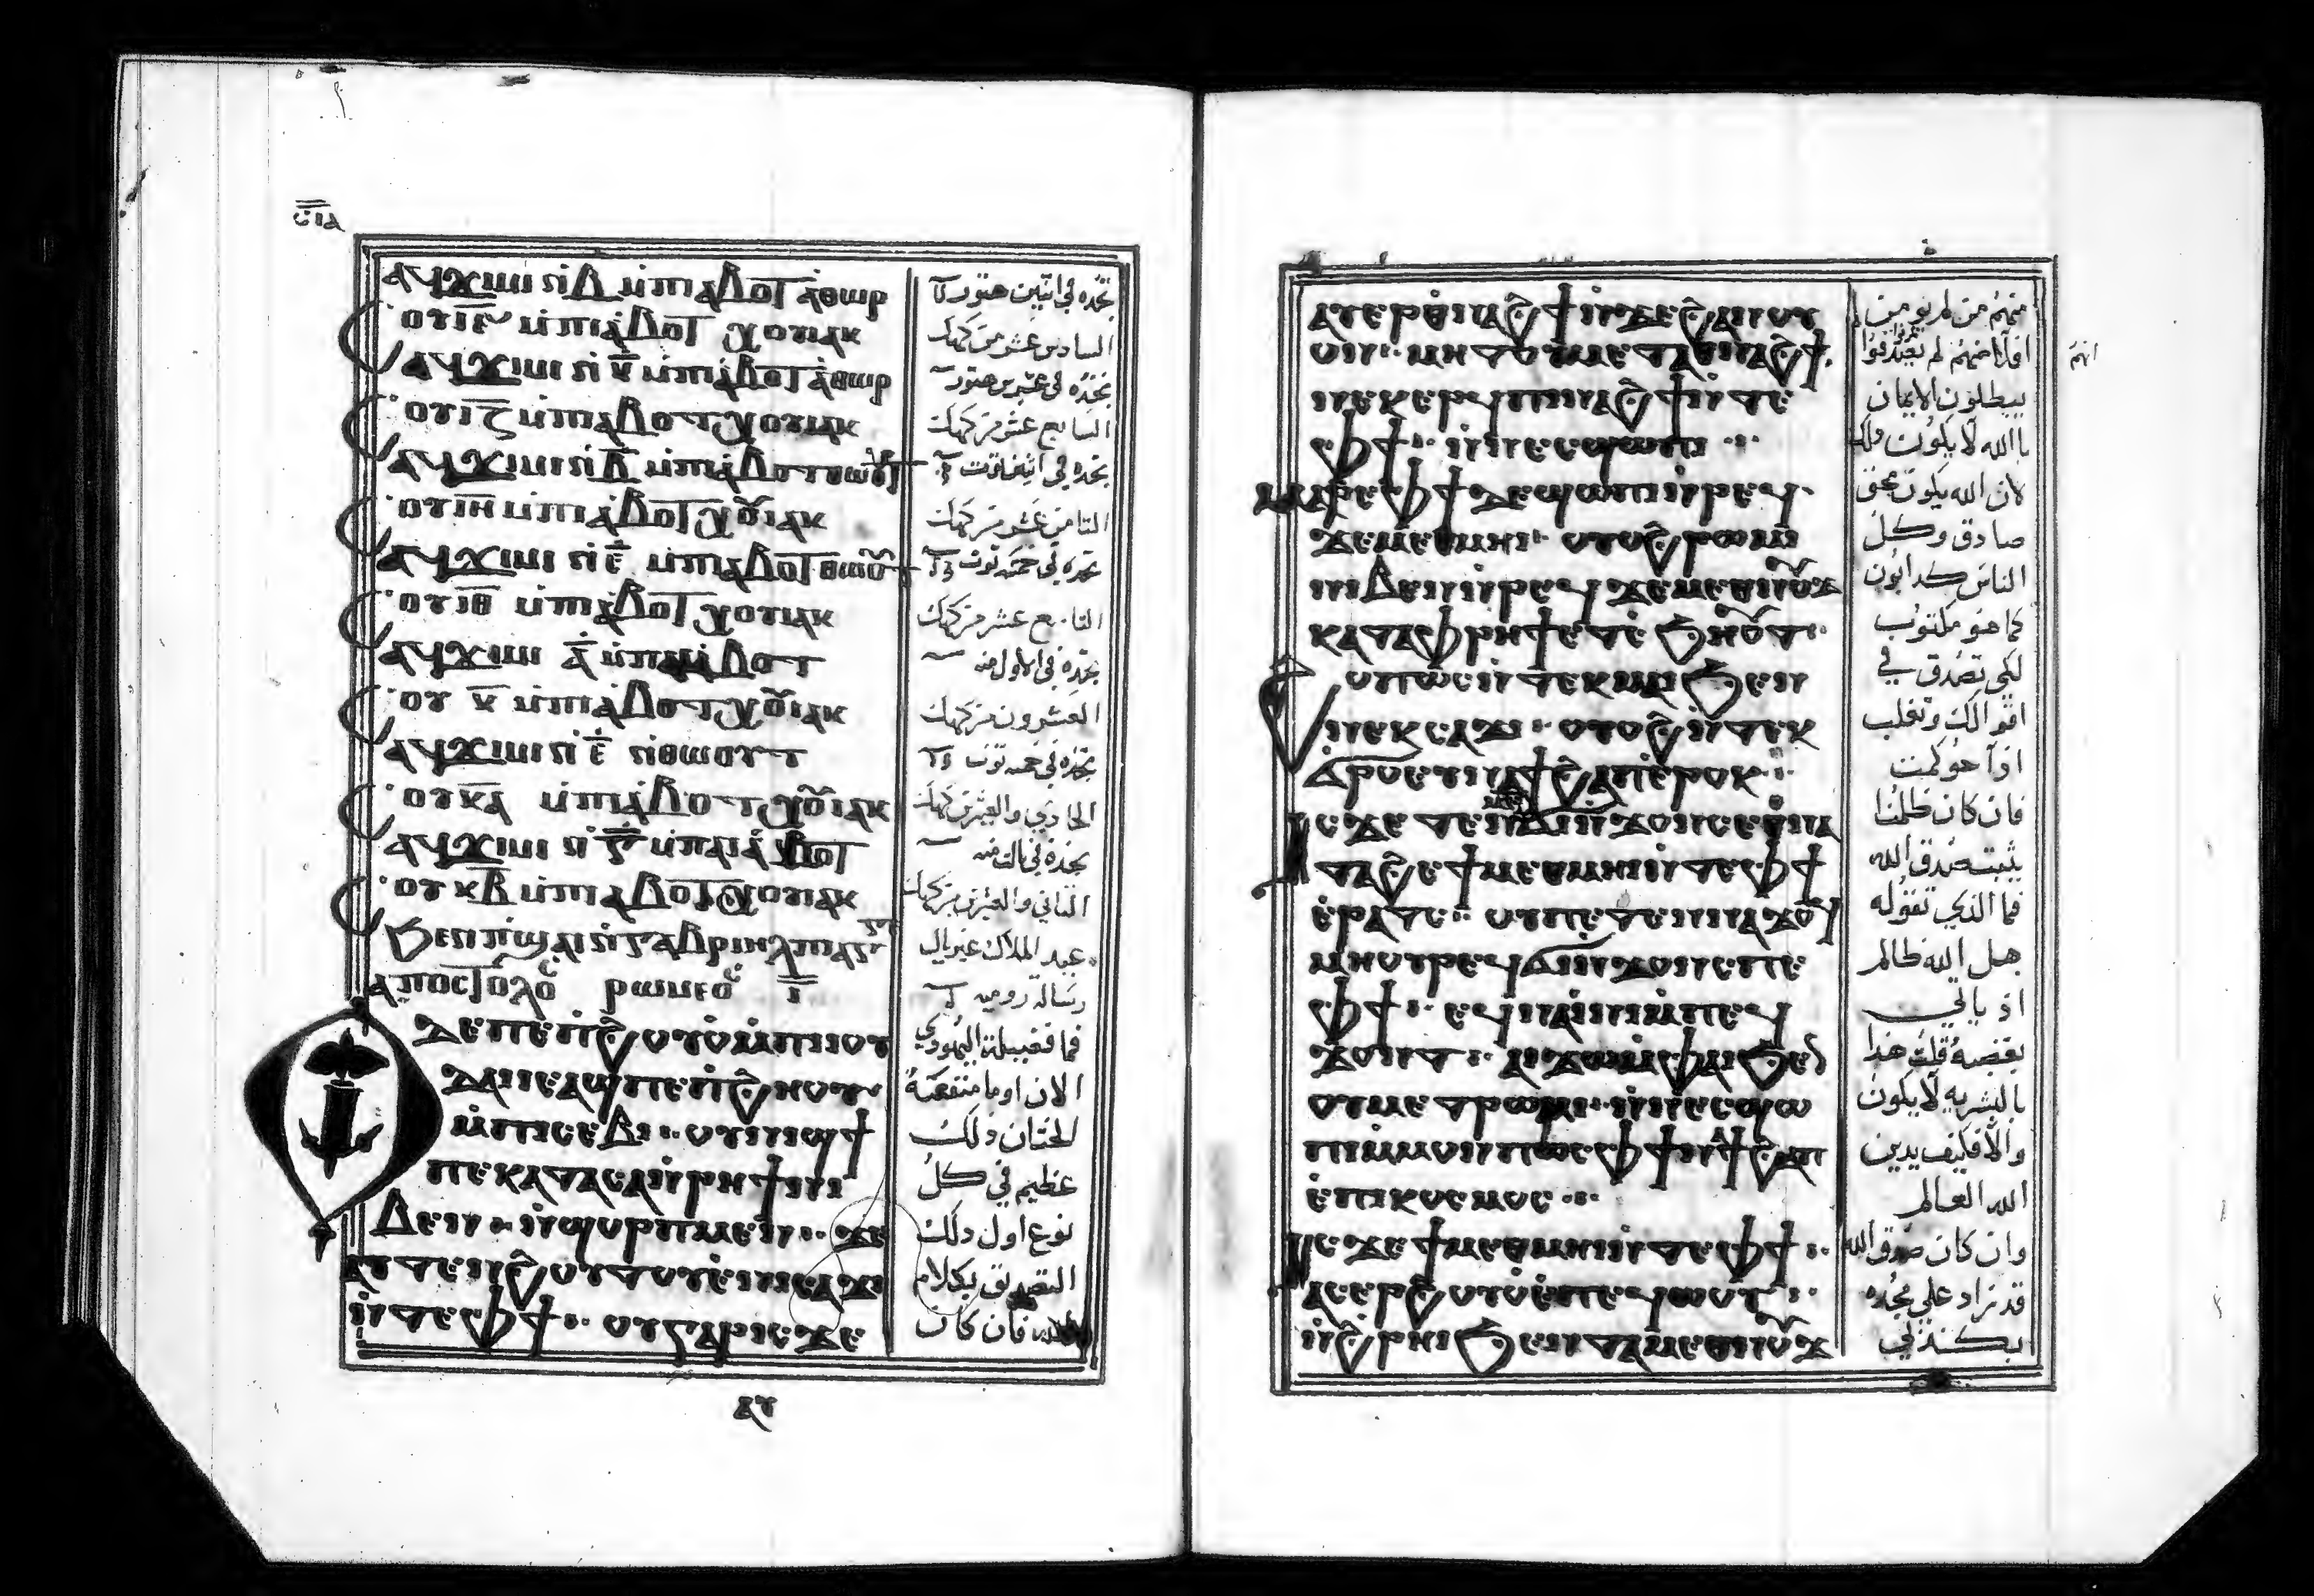 ⲥⲓⲁ
ⲁϥϫⲓⲙⲓ ⲛⲓⲃ̅ ⲙ̀ⲡⲓⲁ̀ⲃⲟⲧ ⲁ̀ⲑⲱⲣ
ⲟⲩⲓⲋ̅ ⲙ̀ⲡⲓⲁ̀ⲃⲟⲧ ⲭⲟⲓⲁⲕ
ⲁϥϫⲓⲙⲓ ⲛⲓ ⲕ̅ ⲙ̀ⲡⲓⲁ̀ⲃⲟⲧ ⲁ̀ⲑⲱⲣ
ⲟⲩⲓⲍ̅ ⲙ̀ⲡⲓⲁⲃⲟⲧ ⲭⲟⲓⲁⲕ
ⲁϥϫⲓⲙⲓ ⲛⲓ ⲃ̅ ⲙ̀ⲡⲓⲁ̀ⲃⲟⲧ ⲑⲱⲟⲩⲧ
ⲟⲩⲓⲏ̅ ⲙ̀ⲡⲓⲁ̀ⲃⲟⲧ ⲭⲟⲓⲁⲕ
ⲁϥϫⲓⲙⲓ ⲛⲓ ⲉ̅ ⲙ̀ⲡⲓⲁ̀ⲃⲟⲧ ⲑⲱⲟⲩⲧ
ⲟⲩⲓⲑ̅ ⲙ̀ⲡⲓⲁ̀ⲃⲟⲧ ⲭⲟⲓⲁⲕ
ⲁϥϫⲓⲙⲓ ⲁ̅ ⲙ̀ⲡⲓⲁ̀ⲃⲟⲧ
ⲟⲩ ⲕ̅ ⲙ̀ⲡⲓⲁ̀ⲃⲟⲧ ⲭⲟⲓⲁⲕ
ⲁϥϫⲓⲙⲓ ⲛⲓ ⲉ̅ ⲛⲓⲑⲱⲟⲩⲧ
ⲟⲩⲕⲁ̅ ⲙ̀ⲡⲓⲁ̀ⲃⲟⲧ ⲭⲟⲓⲁⲕ
ⲁϥϫⲓⲙⲓ ⲛⲓ ⲙ̀ⲡⲓⲁ̀ⲃⲟⲧ
ⲟⲩ ⲕⲃ̅ ⲙ̀ⲡⲓⲁⲃⲟⲧ ⲭⲟⲓⲁⲕ
ⲃⲉⲛ ⲡ̀ϣⲁⲓ ⲛ̀ⲅⲁⲃⲣⲓⲏⲗ ⲡⲓⲁⲅⲅ
ⲁⲡⲟⲥⲧⲟⲗⲟⲥ ⲣⲱⲙⲉⲟⲥ ⲓ̅
ϫⲉ ⲡⲉ ⲡ̀ϩⲟⲩⲟ̀ ⲙ̀ⲡⲓⲓⲟⲩ
ⲇⲁⲓ ⲓⲉ ⲁϣ ⲡⲉ ⲡ̀ϩⲏⲟⲩ
ⲙ̀ⲡⲓⲥⲉⲃⲓ ⲟⲩⲛⲓϣϯ
ⲡⲉ ⲕⲁⲧⲁ ⲥⲁ ⲛ̀ⲣⲏϯ ⲛⲓ
ⲃⲉⲛ ⲛ̀ϣⲟⲣⲡ ⲙⲉⲛ ϫⲉ
ⲁⲩⲧⲉⲛϩⲟⲩⲧⲟⲩ ⲉ̀ⲛⲓⲥⲁϫⲓ
ⲛ̀ⲧⲉⲫϯ ⲟⲩⲅⲁⲣ ⲓⲥϫⲉ
ⲁⲩ
تجده في اثنين هتور
السادس عشر من كهك
تجده في عشرين هتور
السابع عشر من كهك
تجده في اثنين توت
الثامن عشر من كهك
تجده في خمسه توت
التاسع عشر من كهك
تجده في الاول منه
العشرون من كهك
تجده في خمسه توت
الحادي والعشرين كهك
تجده في منه
الثاني والعشرين من كهك
عيد الملاك غبريال
رسالة روميه
فما فضيلة اليهودي
الان او ما منفعة
الختان ذلك
عظيم في كل
نوع اول ذلك
التصديق بكلام
الله فان كان
ⲁⲩⲉⲣⲁⲑⲛⲁϩϯ ⲛ̀ϫⲉ ϩⲁⲛⲟⲩ
ⲟⲛ ⲙⲏ ⲧⲟⲩⲙⲉⲧⲁⲑⲛⲁϩϯ
ⲛⲉⲕⲉⲣϥ ⲡⲓⲛⲁϩϯ ⲛ̀ⲧⲉ
ⲫϯ ⲛ̀ⲛⲉⲥϣⲱⲡⲓ
ⲙⲁⲣⲉⲫϯ ⲇⲉ ϣⲱⲡⲓ ⲛ̀ⲣⲉϥ
ϫⲉⲙⲉⲑⲙⲏⲓ ⲟⲩⲟϩ ⲣⲱⲙⲓ
ⲛⲓⲃⲉⲛ ⲛ̀ⲣⲉϥϫⲉⲙⲉⲑⲛⲟⲩϫ
ⲕⲁⲧⲁⲫⲣⲏϯ ⲉⲧⲥ̀ϧⲏⲟⲩⲧ
ϩⲟⲡⲱⲥ ⲛ̀ⲧⲉⲕⲙⲁⲓ ϧⲉⲛ
ⲛⲉⲕⲥⲁϫⲓ ⲟⲩⲟϩ ⲛ̀ⲧⲉⲕ
ϭⲣⲟ ⲉⲩⲛⲁϯϩⲁⲡ ⲉ̀ⲣⲟⲕ
ⲓⲥϫⲉ ⲧⲉⲛⲙⲉⲧϭⲓⲛϫⲟⲛⲥ ⲉⲑⲛⲁ
ⲧⲁϩⲉ ϯⲙⲉⲑⲙⲏⲓ ⲛ̀ⲧⲉⲫϯ
ⲉ̀ⲣⲁⲧⲥ ⲟⲩ ⲡⲉⲧⲉⲛⲛⲁϫⲟϥ
ⲙⲏ ⲟⲩⲣⲉϥϭⲓⲛ̀ϫⲟⲛⲥ ⲡⲉ
ⲫϯ ⲉϥⲛⲁⲓⲛⲓ ⲙ̀ⲡⲉϥ
ϫⲱⲛⲧ ⲁⲓϫⲱ ⲙ̀ⲫⲁⲓ ϧⲉⲛ
ⲟⲩⲙⲉⲧⲣⲱⲙⲓ ⲛ̀ⲛⲉⲥϣⲱ
ⲡⲓ ⲙ̀ⲙⲟⲛ ⲡⲱⲥ ⲫϯ ⲛⲁϯϩⲁⲡ
ⲉ̀ⲡⲓⲕⲟⲥⲙⲟⲥ
ⲓⲥϫⲉ ϯⲙⲉⲑⲙⲏⲓ ⲛ̀ⲧⲉⲫϯ
ⲁⲥⲉⲣϩⲟⲩⲟ̀ ⲉ̀ⲡⲉϥⲱⲟⲩ
ⲛ̀ϩⲣⲏⲓ ϧⲉⲛ ⲧⲁⲙⲉⲑⲛⲟⲩϫ
منهم من لم يومن
افلانهم لم يصدقوا
يبطلون الايمان
با الله لا يكون ذلك
لان الله يكون محق
صادق وكل
الناس كدابون
كما هو مكتوب
لكي تصدق في
اقوالك وتغلب
اذا حوكمت
فان كان ظلمنا
يثبت صدق الله
فما الذي تقوله
هل الله ظالم
اذ ياتي
بغضبه قلت هذا
بالبشريه لا يكون
والا فكيف يدين
الله العالم
وان كان صدق الله
قد زاد علي مجده
بكذبي
انهم